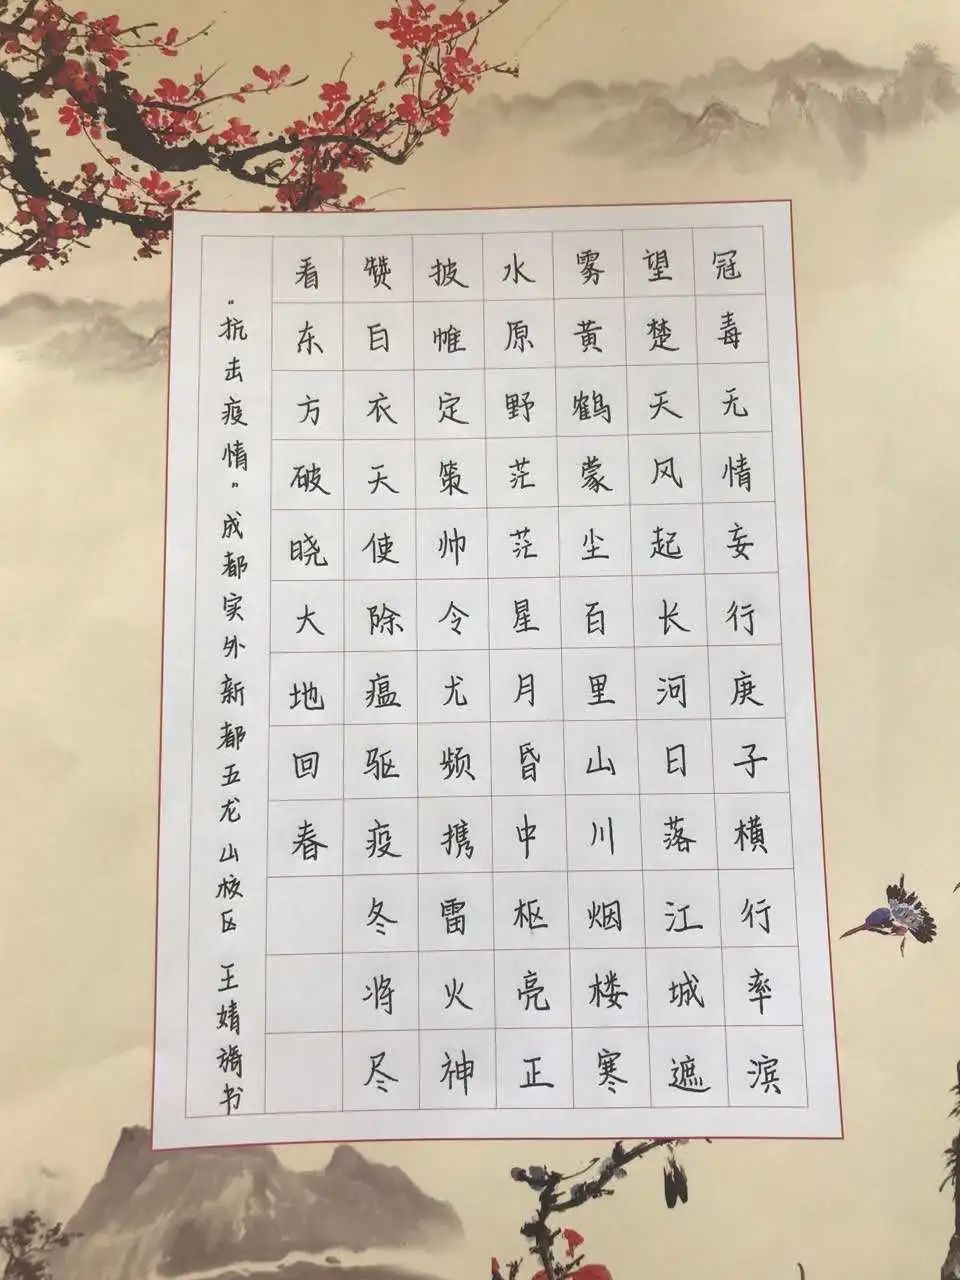 冠毒无情妄行庚子横行率滨
望楚天风起长河日落江城遮
雾黄鹤蒙尘百里山川烟楼寒
水原野茫茫星月昏中枢亮正
披帷定策帅令尤频携雷火神
赞白衣天使除瘟驱疫冬将尽
看东方破晓大地回春
“抗击疫情”成都实外新都五龙山校区 王婧旖书